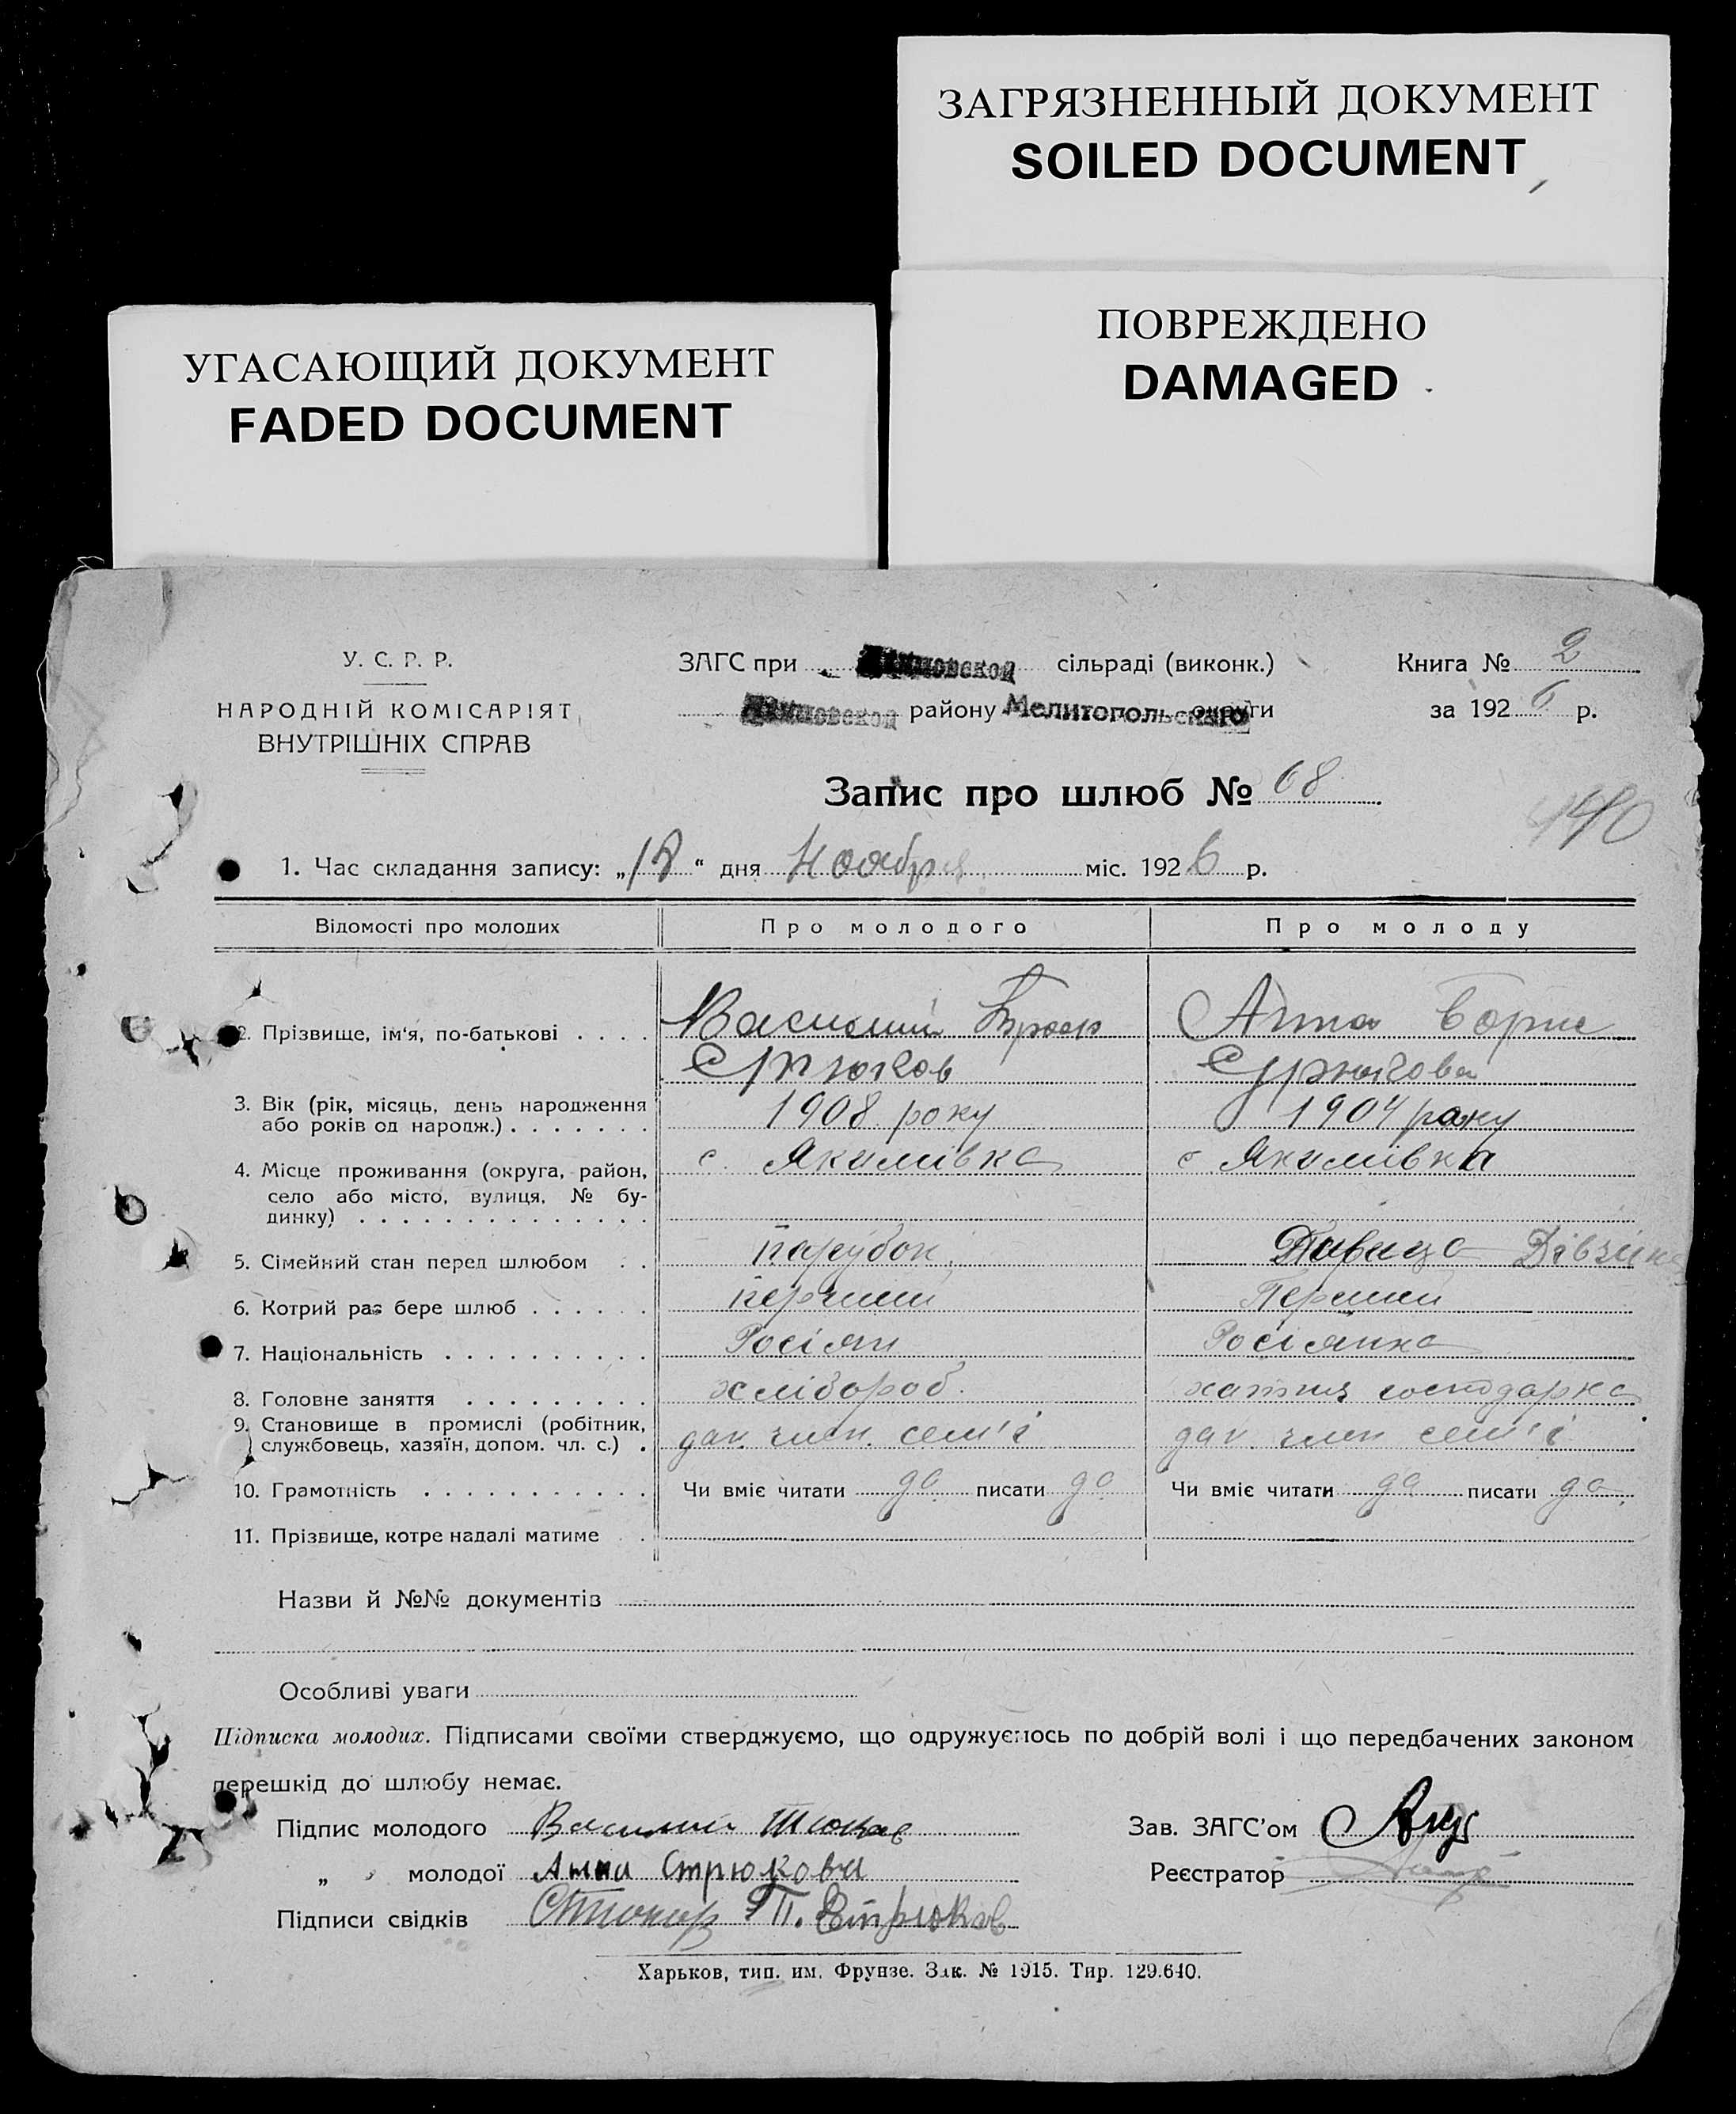 ЗАГРЯЗНЕННЫЙ ДОКУМЕНТ
SOILED DOCUMENT
ПОВРЕЖДЕНО
DAMAGED
УГАСАЮЩИЙ ДОКУМЕНТ
FADED DOCUMENT
У. С. Р. Р.
НАРОДНІЙ КОМІСАРІЯТ
ВНУТРІШНІХ СПРАВ
ЗАГС при сільраді (виконк.)
району Мелитопольского округи
Книга № 2
за 1926 р.
Запис про шлюб № 68
1. Час складання запису: „18“ дня Ноября міс. 1926 р.
Відомості про молодих Про молодого Про молоду
2. Прізвище, ім'я, по-батькові . . . . Василий Анна Борис
Стрюков Стрюкова
3. Вік (рік, місяць, день народження 1908 року 1904 року
або років од народж.) . . . . . . .
4. Місце проживання (округа, район, с. Якимівка с Якимівка
село або місто, вулиця, № бу-
динку) . . . . . . . . . . . . . .
5. Сімейний стан перед шлюбом . . парубок Дівчина
6. Котрий раз бере шлюб . . . . . . перший Перший
7. Національність . . . . . . . . . . Росіян Росіянка
8. Головне заняття . . . . . . . . . хлібороб. хатня господарка
9. Становище в промислі (робітник,
службовець, хазяїн, допом. чл. с.) . член. сем'ї член сем'ї
10. Грамотність . . . . . . . . . . . Чи вміє читати да писати да Чи вміє читати да писати да
11. Прізвище, котре надалі матиме .
Назви й №№ документів
Особливі уваги
Підписка молодих. Підписами своїми стверджуємо, що одружуємось по добрій волі і що передбачених законом
перешкід до шлюбу немає.
Підпис молодого Василий
„ молодої Анна Стрюкова
Підписи свідків П. Стрюков
Зав. ЗАГС'ом
Реєстратор
Харьков, тип. им. Фрунзе. Зак. № 1915. Тир. 129.640.